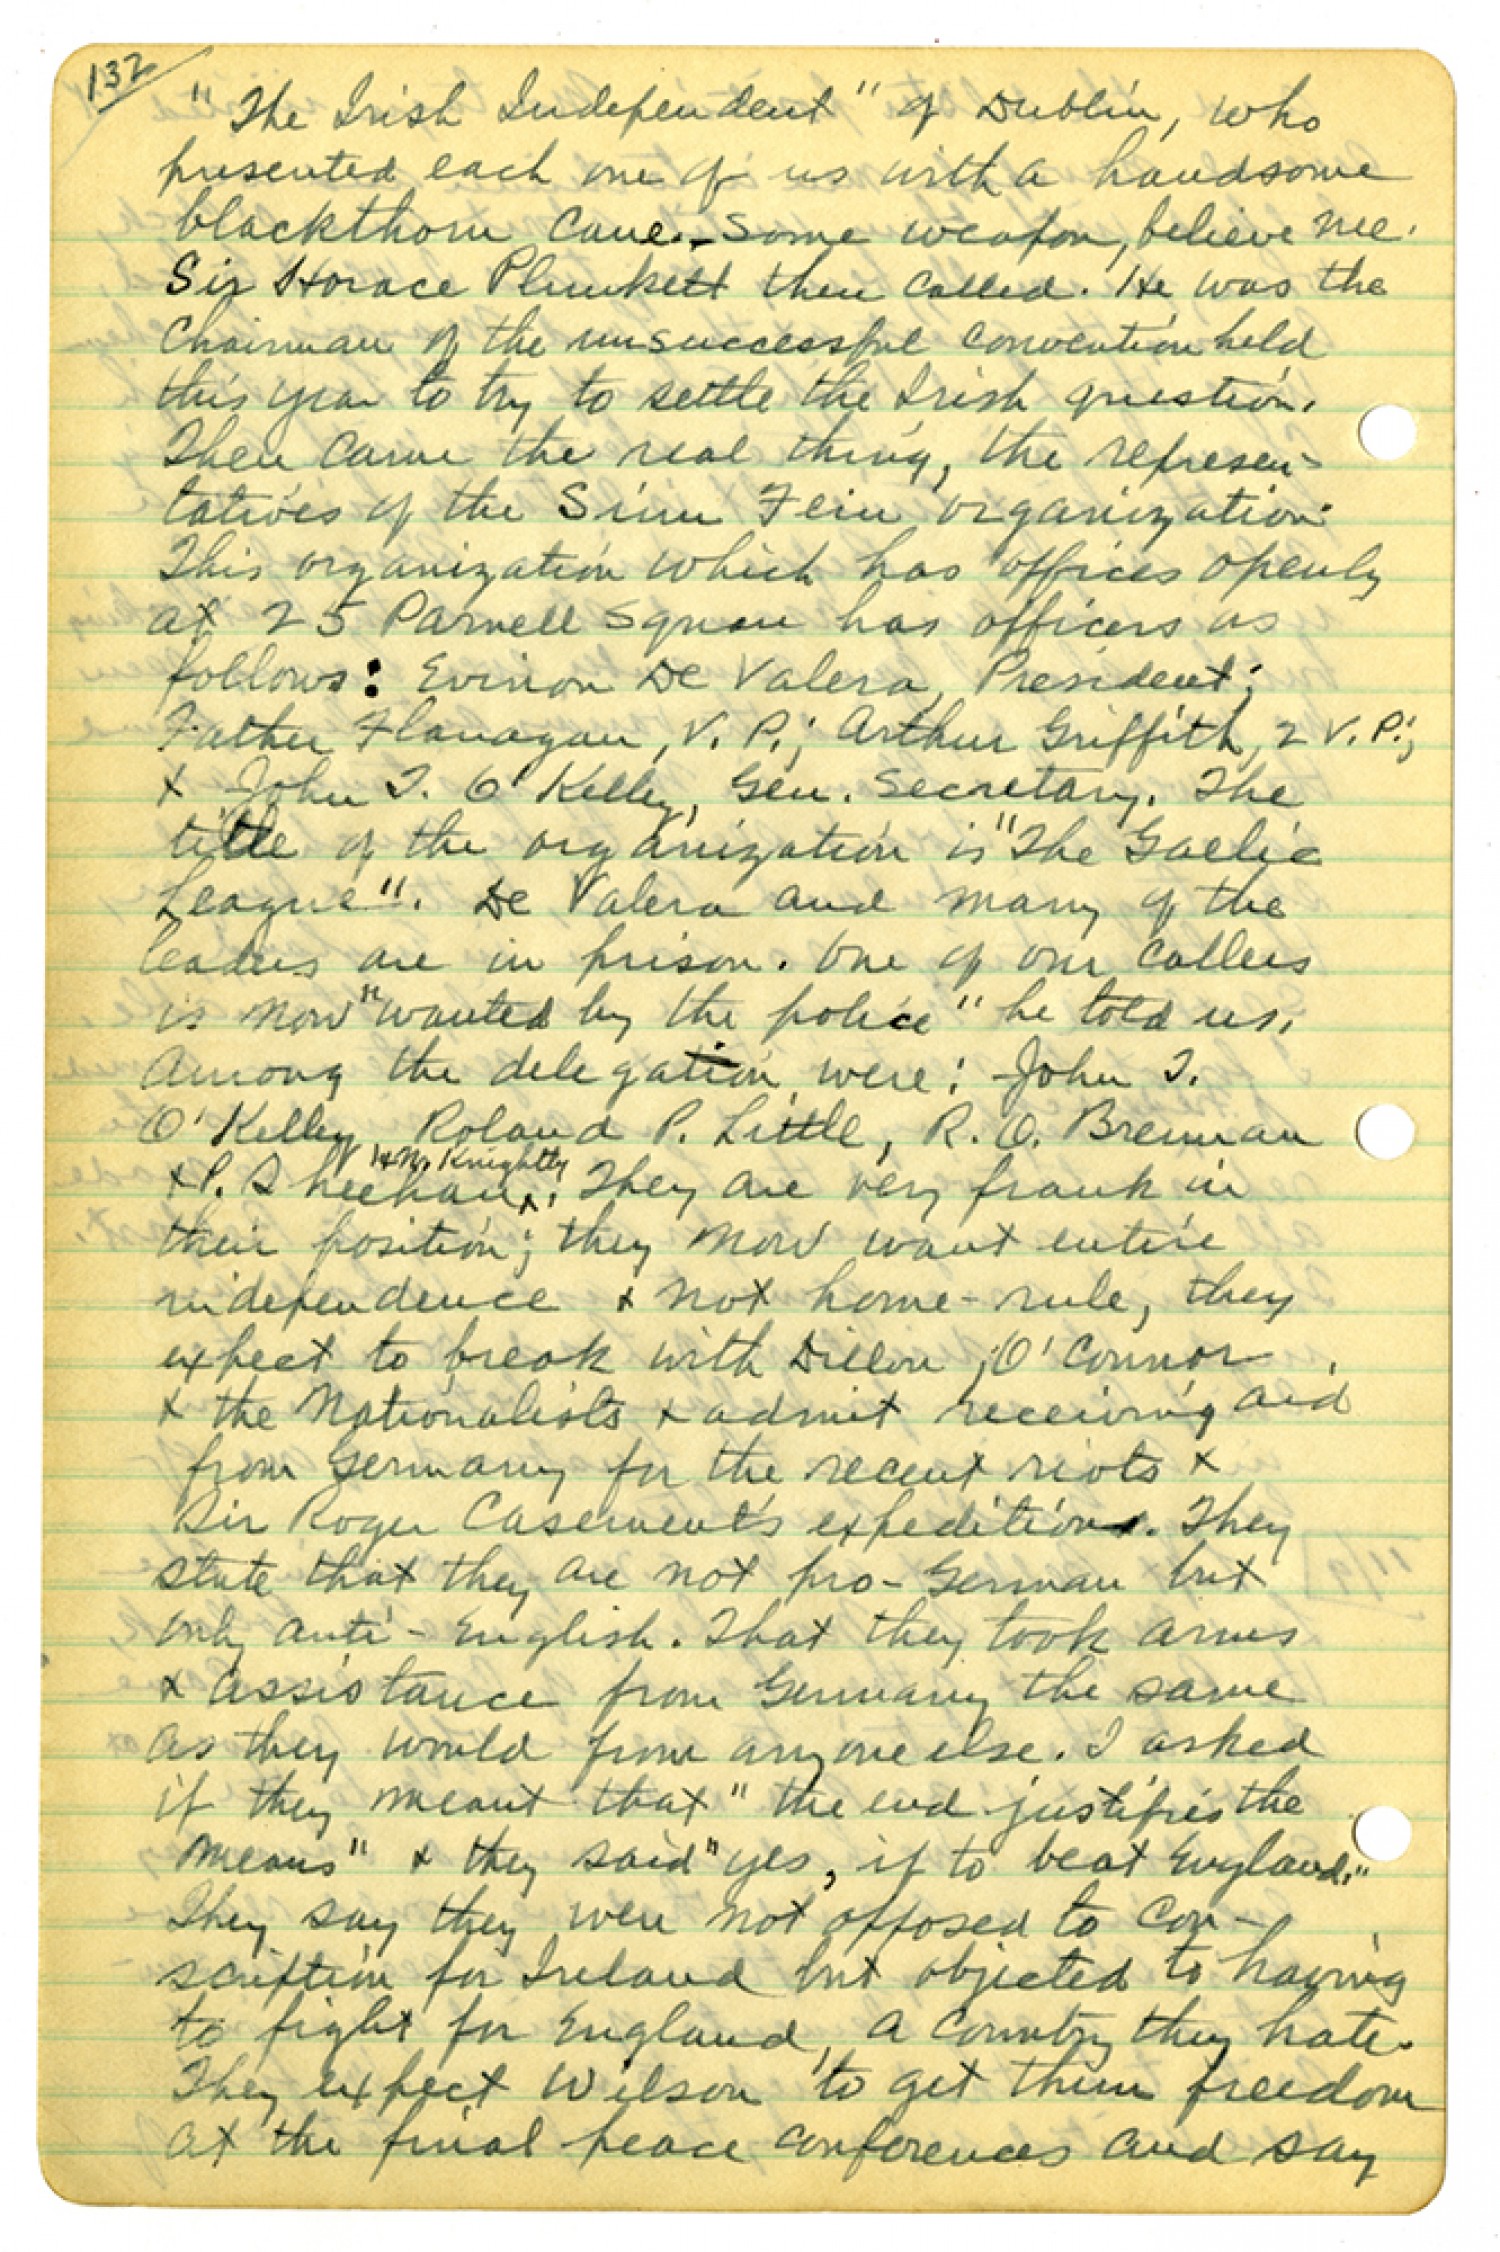 132
"The Irish Independent" of Dublin, who
presented each one of us with a handsome
blackthorn cane. - Some weapon, believe me.
Sir Horace Plunkett then called. He was the
Chairman of the unsuccessful convention held
this year to try to settle the Irish question.
Then came the real thing, the represen-
tatives of the Sinn Fein organization.
This organization which has offices openly
at 25 Parnell Square has officers as
follows: De Valera, President;
Father Flanagan, V. P.; Arthur Griffith, 2 V. P.;
& John T. O'Kelley, Gen. Secretary. The
title of the organization is "The Gaelic
League". De Valera and many of the
leaders are in prison. One of our callers
is now "wanted by the police" he told us.
Among the delegation were: John T.
O'Kelley, Roland P. Little, R. O. Brennan
& P. Sheehan, & Mr. Knightly. They are very frank in
their position; they now want entire
independence & not home-rule, they
expect to break with Dillon, O'Connor
& the Nationalists & admit receiving aid
from Germany for the recent riots &
Sir Roger Casement's expedition. They
state that they are not pro-German but
only anti-English. That they took arms
& assistance from Germany the same
as they would from anyone else. I asked
if they meant that "the end justifies the
means" & they said "yes, if to beat England."
They say they were not opposed to con-
scription for Ireland but objected to having
to fight for England, a country they hate.
They expect Wilson to get them freedom
at the final peace conferences and say